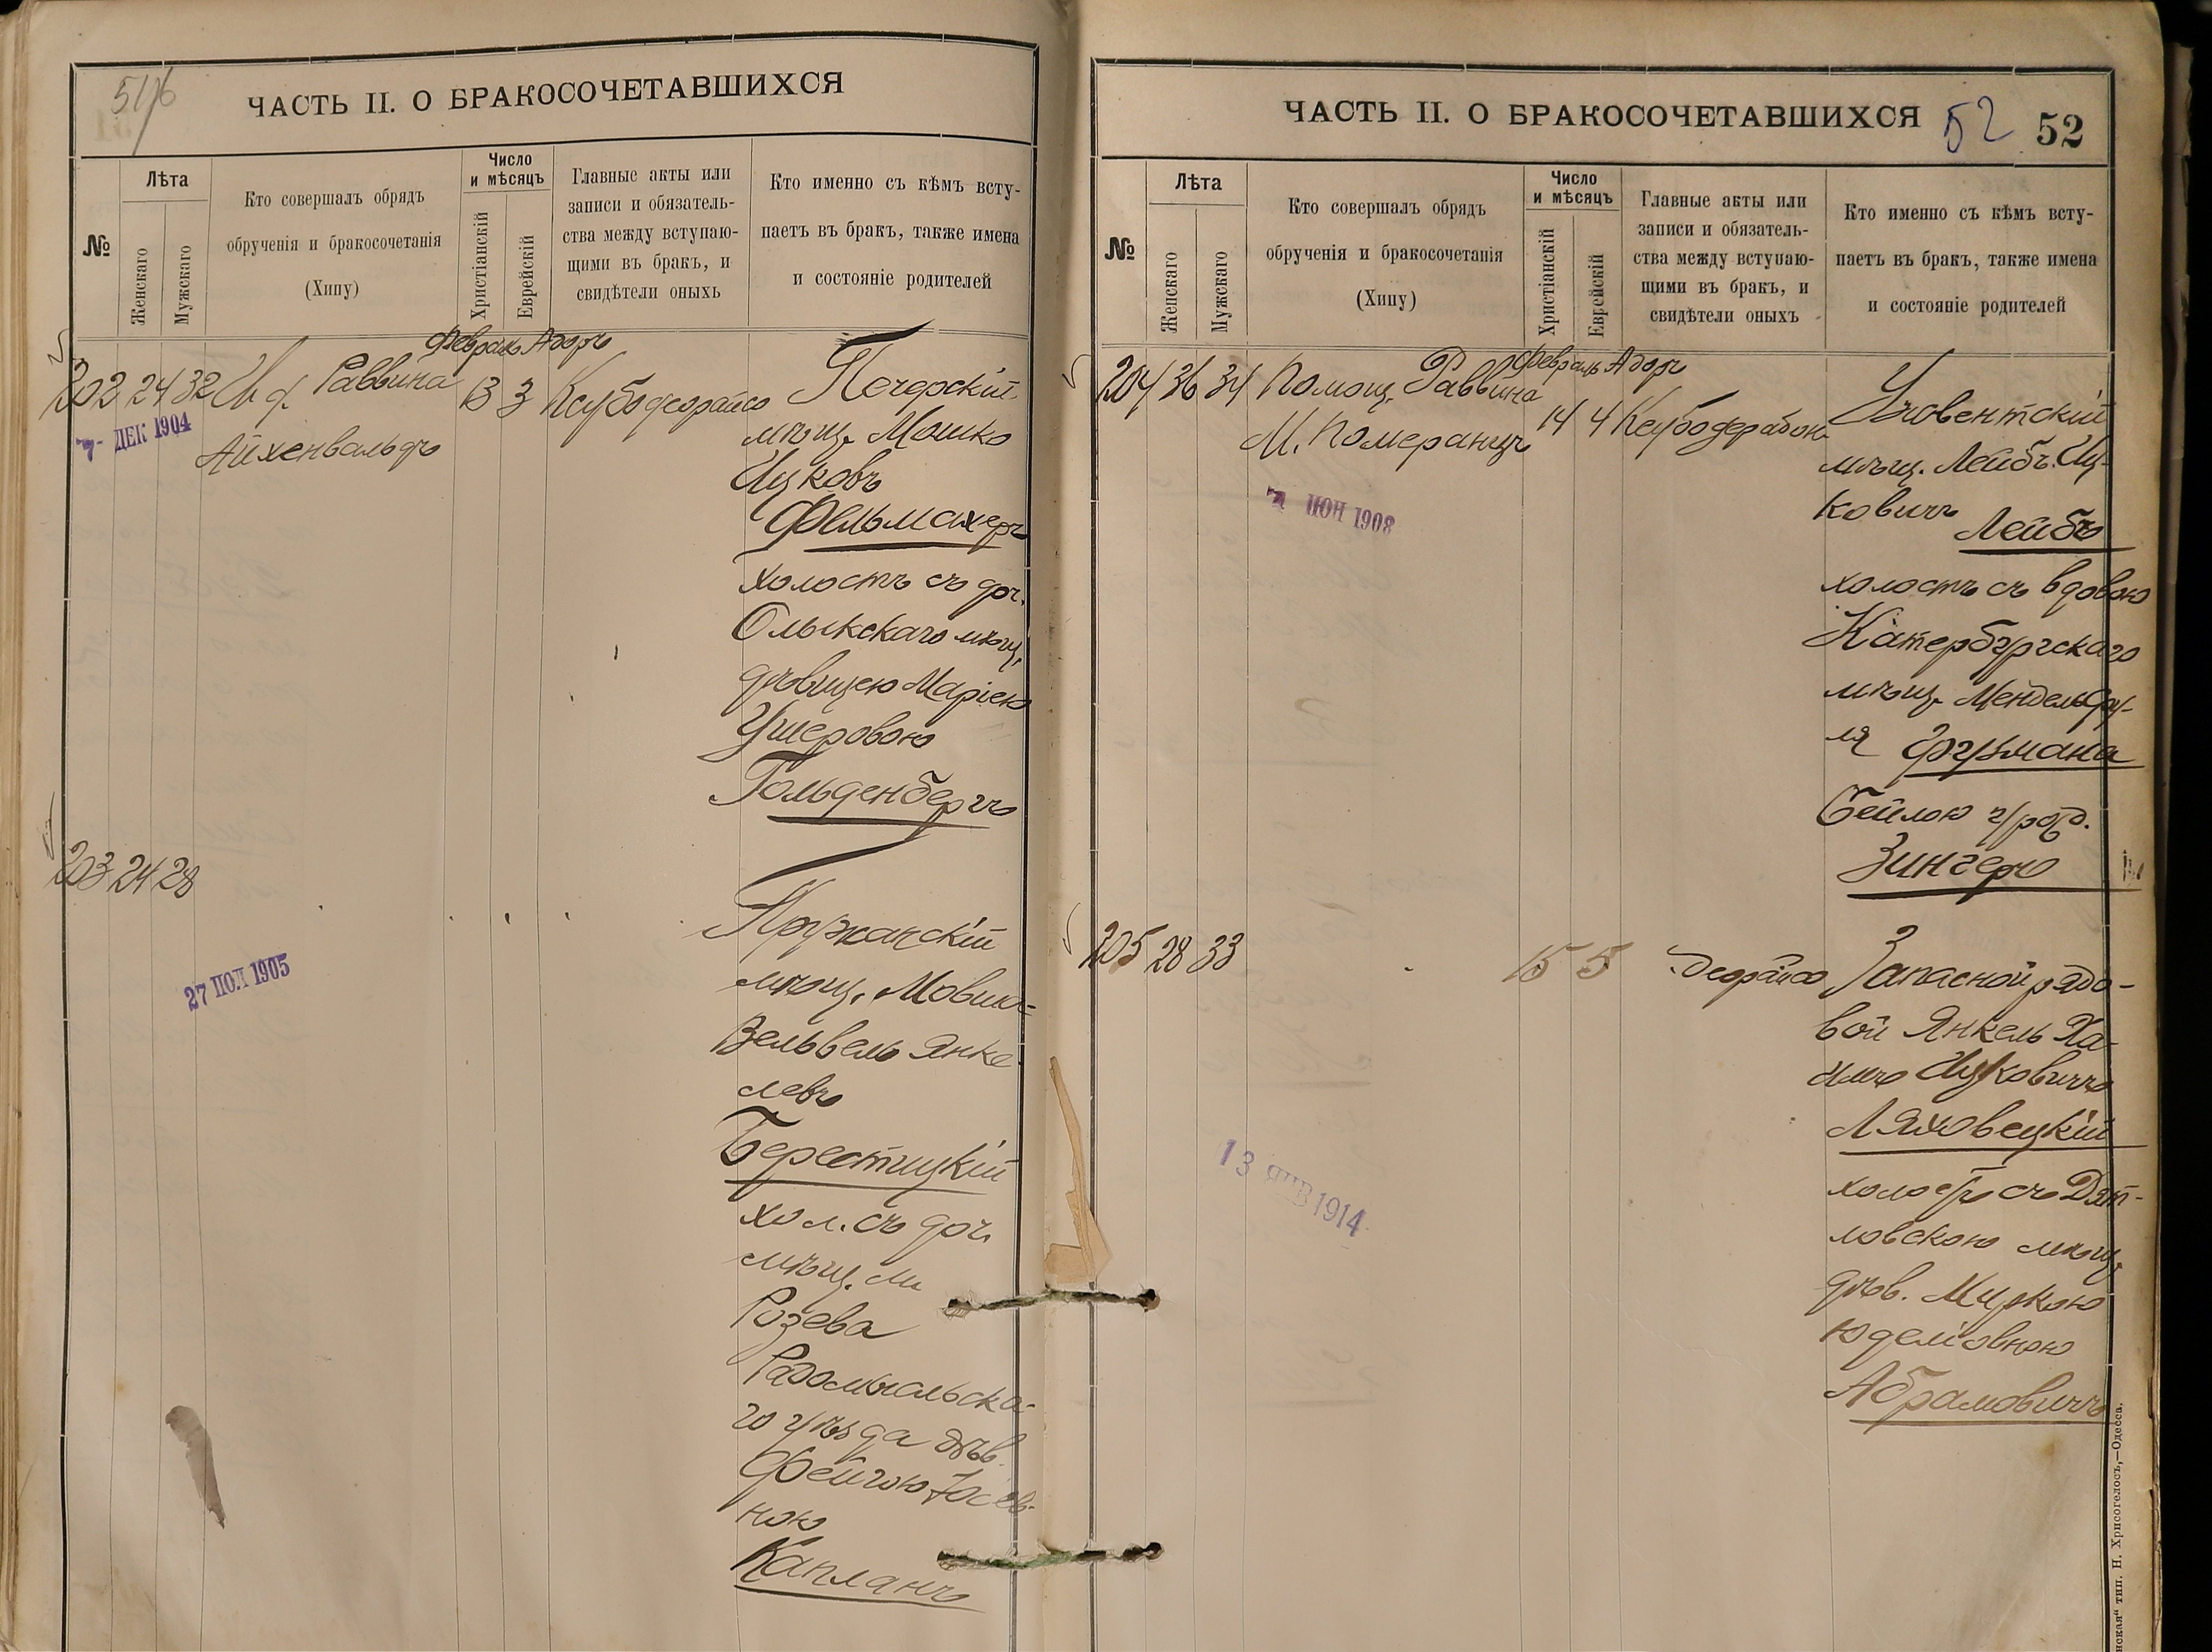 51/6
ЧАСТЬ II. О БРАКОСОЧЕТАВШИХСЯ
№
Лѣта
Женскаго
Мужскаго
Кто совершалъ обрядъ
обрученія и бракосочетанія
(Хипу)
Число
и мѣсяцъ
Христіанскій
Еврейскій
Главные акты или
записи и обязатель-
ства между вступаю-
щими въ бракъ, и
свидѣтели оныхъ
Кто именно съ кѣмъ всту-
паетъ въ бракъ, также имена
и состояніе родителей
Февраль Адоръ
202 24 32 И д. Раввина 13 3
Айхенвальдъ
7- ДЕК 1904
Печерскій
мѣщ. Мошко
Ицковъ
Фельмахеръ
холостъ съ доч.
Олыкскаго мѣщ.
дѣвицею Маріею
Ушеровою
Гольденбергъ
203 24 28
27 ПОЛ 1905
Пружанскій
мѣщ. Мовша-
Вельвель Янке
левъ
Берестицкій
хол. съ доч.
мѣщ. м.
Розева
Радомысльска-
го уѣзда дѣв.
Фейгою
ною
Капланъ
ЧАСТЬ II. О БРАКОСОЧЕТАВШИХСЯ
52
52
№
Лѣта
Женскаго
Мужскаго
Кто совершалъ обрядъ
обрученія и бракосочетанія
(Хипу)
Число
и мѣсяцъ
Христіанскій
Еврейскій
Главные акты или
записи и обязатель-
ства между вступаю-
щими въ бракъ, и
свидѣтели оныхъ
Кто именно съ кѣмъ всту-
паетъ въ бракъ, также имена
и состояніе родителей
Февраль Адоръ
204 36 34 Помощ. Раввина
М. Померанцъ
14 4
ИЮН 1908
мѣщ. Лейбъ Иц-
ковичъ Лейбъ
холостъ съ вдовою
Катербургскаго
мѣщ. Мендель Сру-
ля Фурмана
Бейлою у/рожд.
Зингеръ
205 28 33
15 5
13 ЯНВ 1914
Запасной рядо-
вой Янкель Ха-
имъ Ицковичъ
Ляховецкій
холостъ съ Дят-
ловскою мѣщ.
дѣв. Миркою
Юделіовною
Абрамовичъ
тип. Н. Хрисогелосъ,—Одесса.